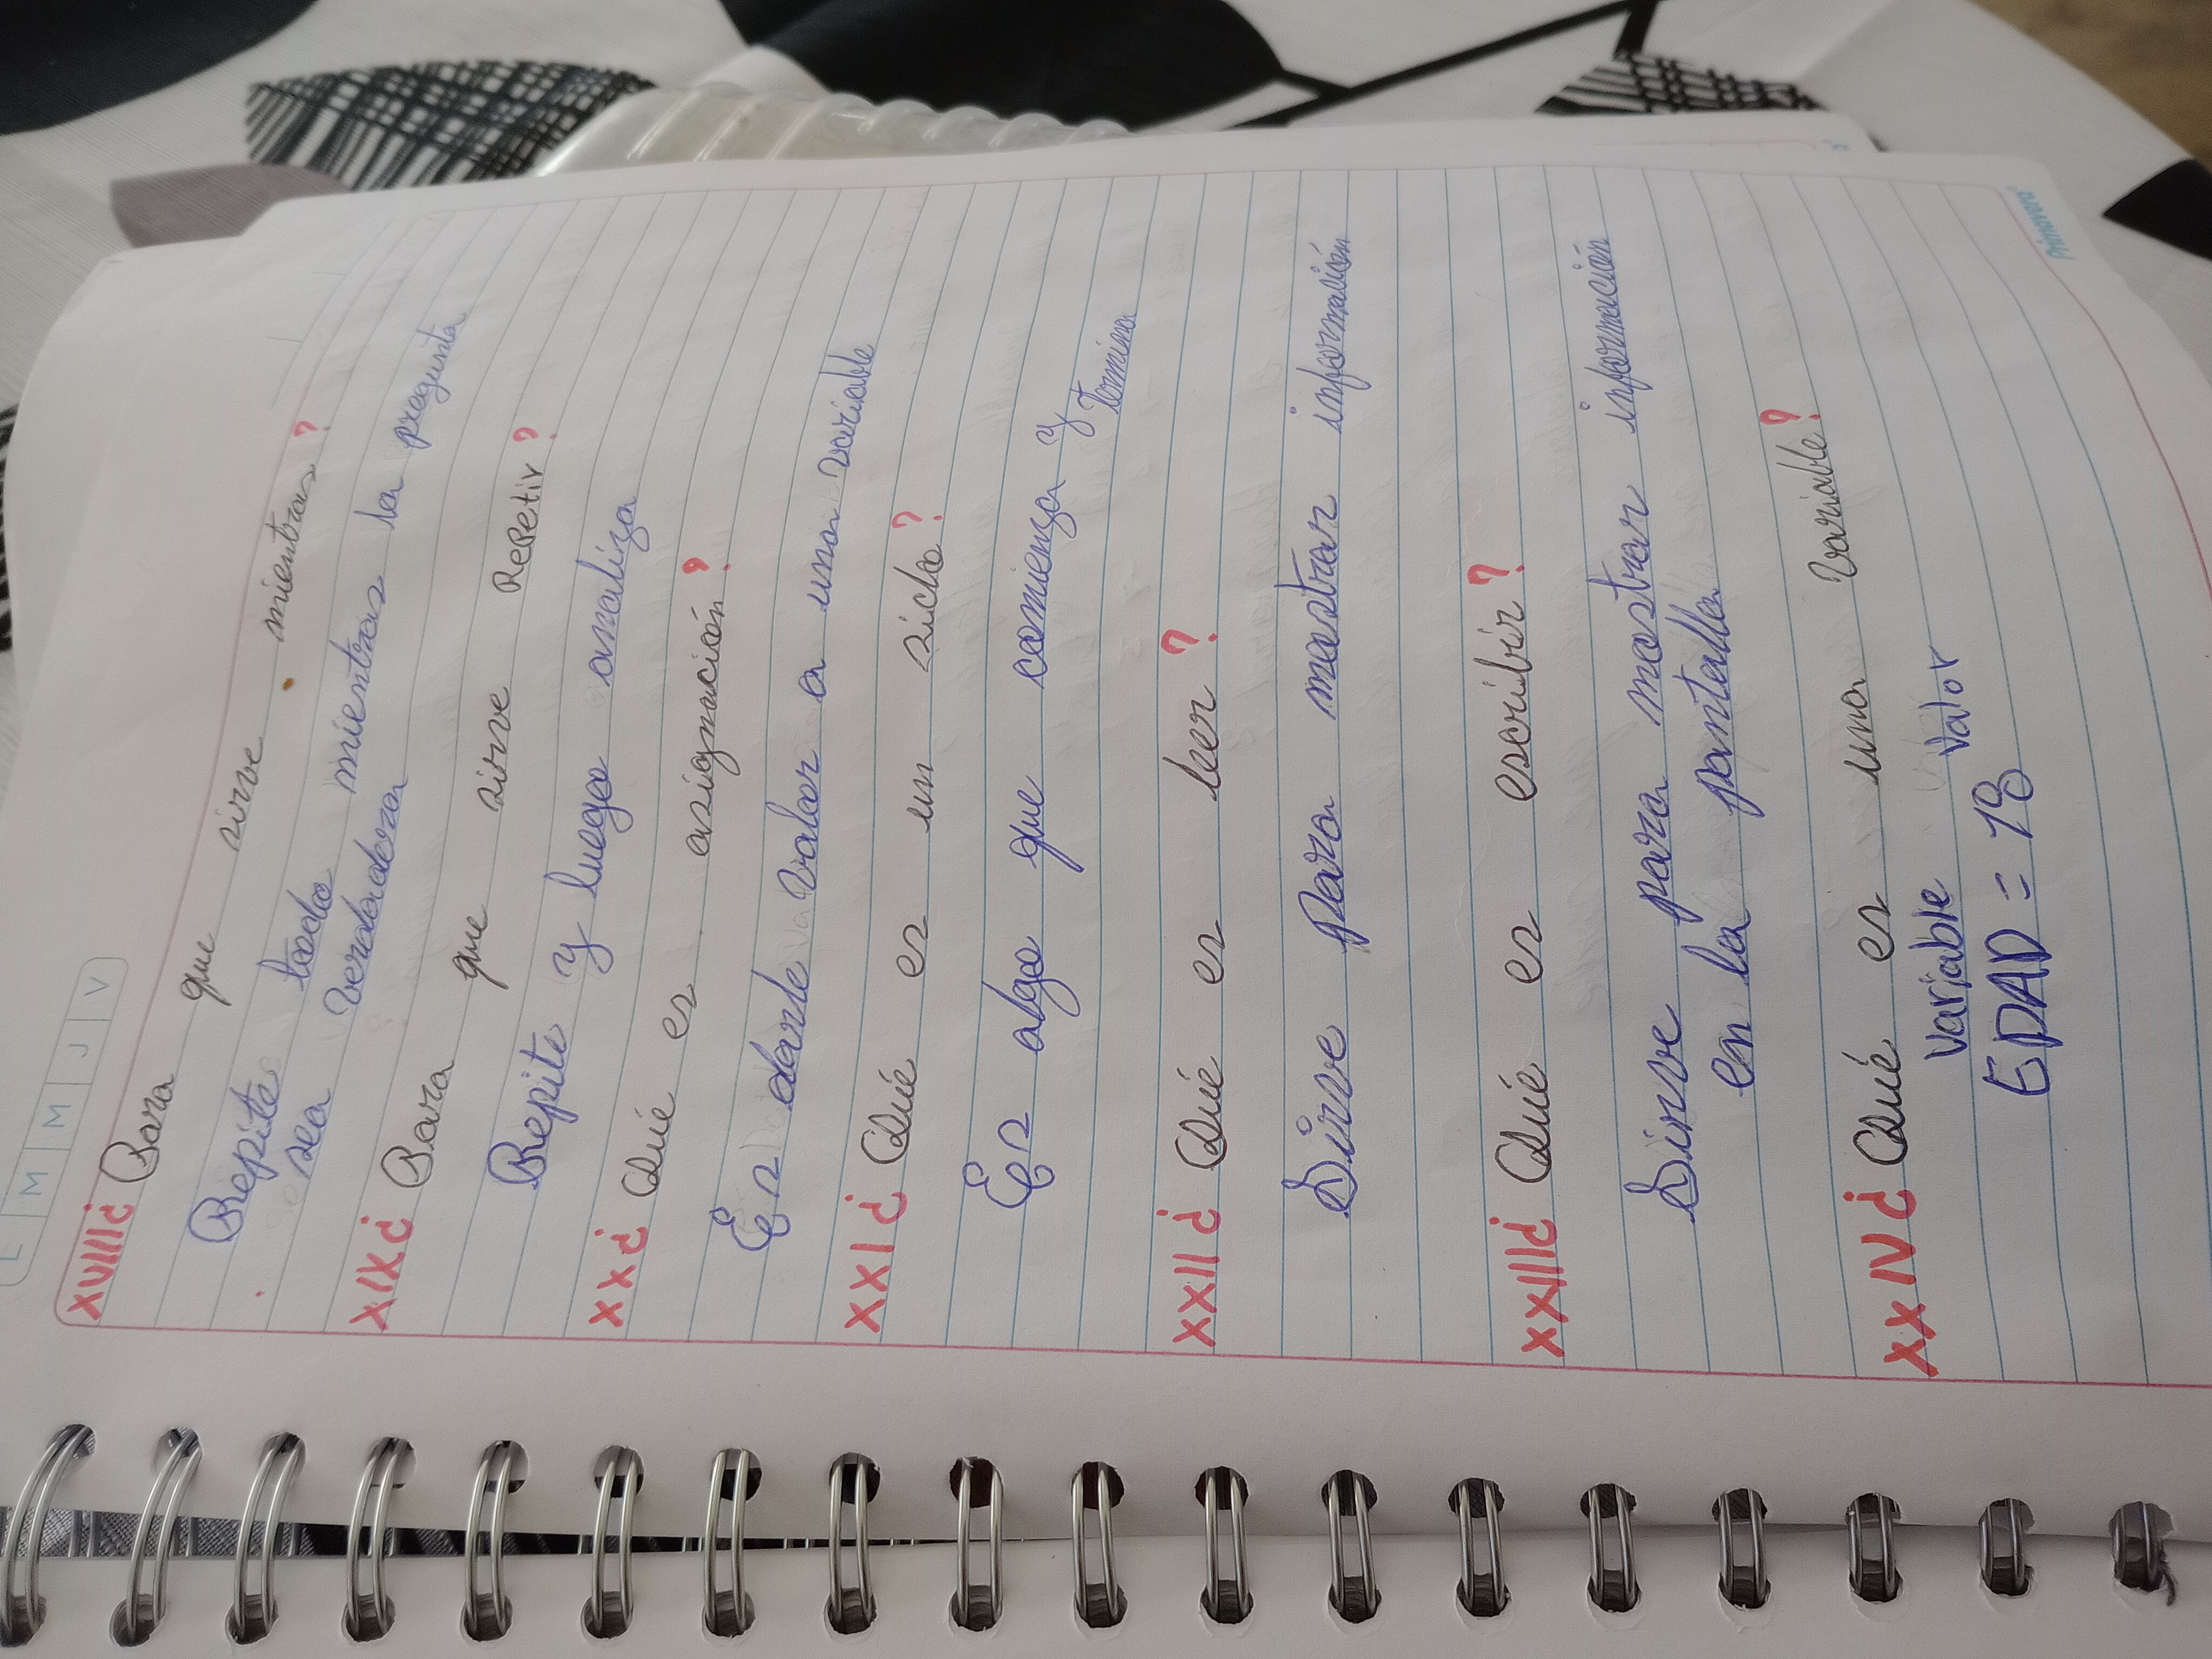 L M M J V
XVIII¿ Para que sirve mientras?
Repite todo mientras la pregunta
sea verdadera
XIX¿ Para que sirve Repetir?
Repite y luego analiza
XX¿ Qué es asignación?
Es darle valor a una variable
XXI¿ Qué es un siclo?
Es algo que comienza y
termina
XXII¿ Qué es leer?
Sirve Para mostrar información
XXIII¿ Qué es escribir?
Sirve para mostrar información
en la pantalla
XXIV¿ Qué es una variable?
Variable Valor
EDAD = 18
Primavera